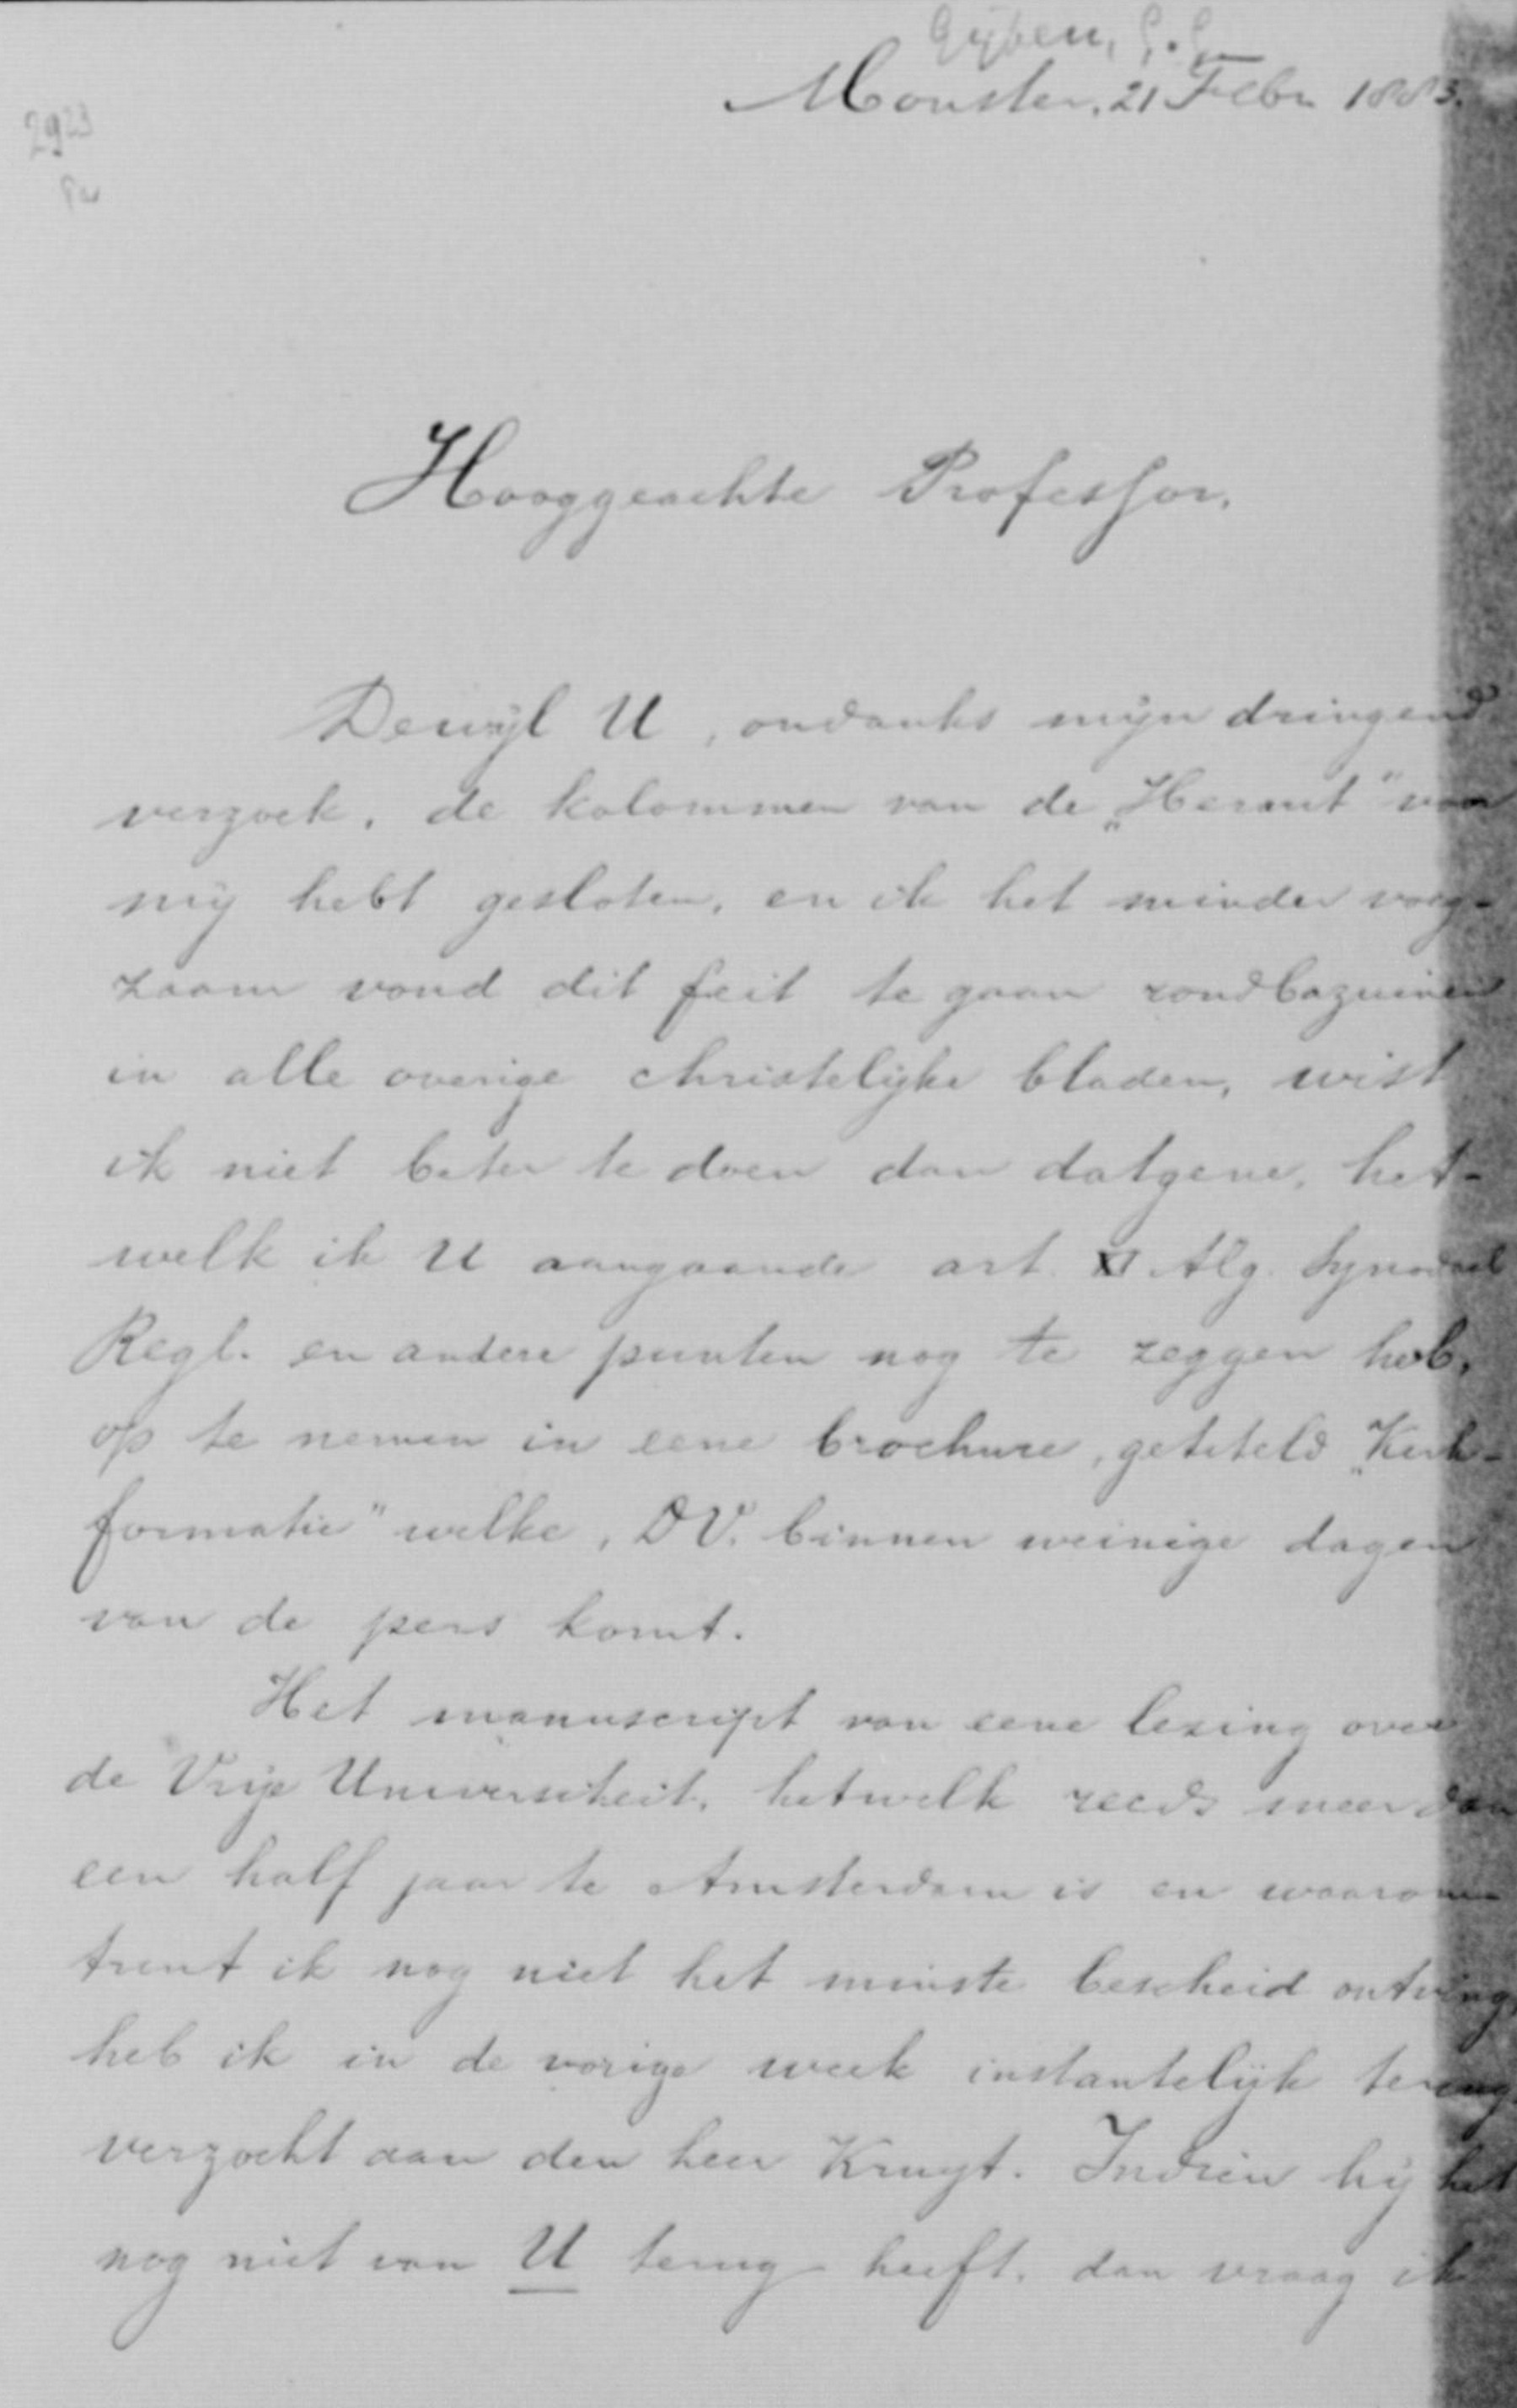 Monster, 21 Febr 1883.
2923
Hooggeachte Professor.
Dewijl U, ondanks mijn dringend
verzoek, de kolommen van de „Heraut" voor
mij hebt gesloten, en ik het minder voeg-
zaam vond dit feit te gaan rondbazuinen
in alle overige christelijke bladen, wist
ik niet beter te doen dan datgene, het-
welk ik U aangaande art. XI Alg. Synodaal
Regl. en andere punten nog te zeggen heb,
op te nemen in eene brochure, getiteld „Kerk-
formatie" welke, DV. binnen weinige dagen
van de pers komt.
Het manuscript van eene lezing over
de Vrije Universiteit, hetwelk reeds meer dan
een half jaar te Amsterdam is en waarom-
trent ik nog niet het minste bescheid ontving,
heb ik in de vorige week instantelijk terug
verzocht aan den heer Kruyt. Indien hij het
nog niet van U terug heeft, dan vraag ik